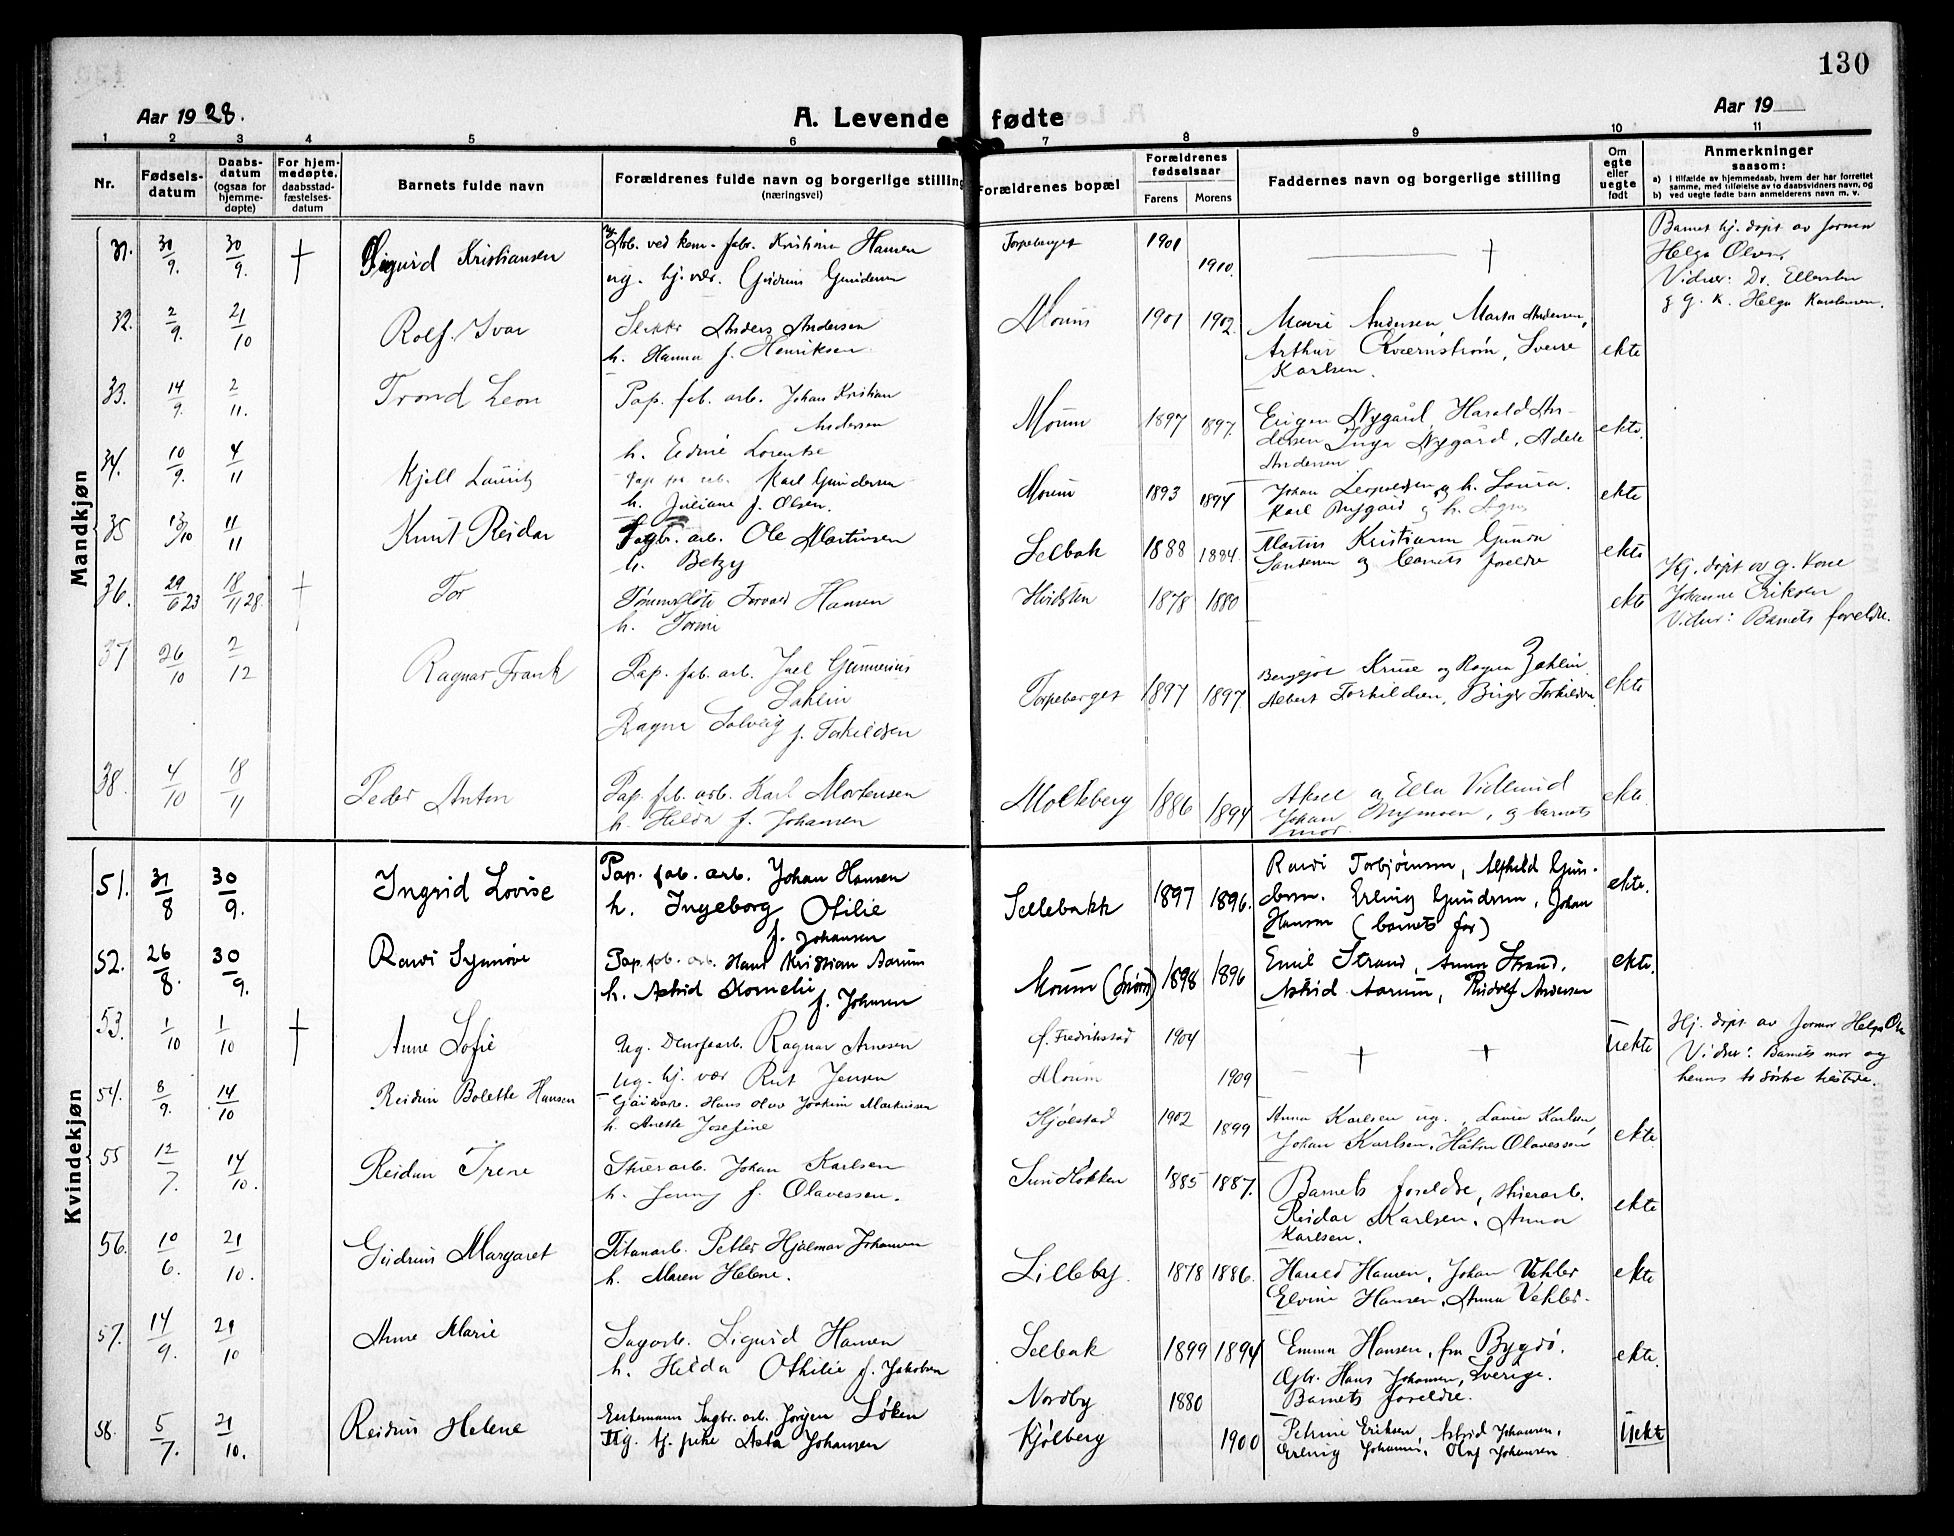 130
Aar 1928.
A. Levende fødte
Aar 19
1 2 3 4 5 6 7 8 9 10 11
Nr.
Fødselsdatum
Daabsdatum (ogsaa for hjemmedøpte)
For hjemmedøpte, daabsstadfæstelsesdatum
Barnets fulde navn
Forældrenes fulde navn og borgerlige stilling (næringsvei)
Forældrenes bopæl
Forældrenes fødselsaar
Farens Morens
Faddernes navn og borgerlige stilling
Om egte eller uegte født
Anmerkninger
saasom:
a) i tilfælde av hjemmedaab, hvem der har forrettet samme, med tilføielse av to daabsvidners navn, og
b) ved uegte fødte barn anmelderens navn m. v.
Mandkjøn
31. 30/9. 30/9. † Sigurd Kristiansen
Arb. ved kem. fabr. Kristian Hansen
ug. hj. vær. Gudrun Gundersen
Torpeberget 1901 1910. †
Barnet hj. døpt av formor
Helga Olsen
Vidner: Dr. Ellefsen
g. k. Helga Karlsen.
32. 2/9. 21/10 Rolf Ivar
Anders Andersen
h. Hanna f. Henriksen
Moum 1901 1902.
Marie Andersen, Marta Andersen,
Arthur Kværnstrøm, Sverre
Karlsen. ekte
33. 14/9. 2/11. Trond Leon
Pap. fab. arb. Johan Kristian
Andersen
h. Edine Lorentse
Moum 1897 1897.
Eugen Nygård, Harald An-
dersen Inga Nygård, Adele
Andersen ekte.
34. 10/9. 4/11 Kjell Lauritz
Pap. fa. arb. Karl Gundersen
h. Juliane f. Olsen.
Moum 1893 1894
Johan Leopoldsen og h. Laura.
Karl Nygård og h. Agnes ekte
35 13/10 11/11 Knut Reidar
Sagbr. arb. Ole Martinsen
h. Betzy
Selbak 1888 1884.
Martin Kristiansen Gunda
og barnets foreldre ekte
36. 29/6 23 18/11 28. † Tor
Tømmerfløter Torvald Hansen
h. Tomine
Hvidsten 1878 1880 ekte
Hj. døpt av g. kone
Johanne Eriksen
Vidner: Barnets foreldre.
37 26/10 2/12 Ragnar Frank
Pap. fab. arb. Joel Gunnerius
Sahlin
Ragna Solveig f. Torkildsen
Torpeberget 1897 1897
Bergljot Kruse og Ragna Zahlin
Albert Torkildsen, Birger Torkildsen. ekte
38. 4/10 18/11 Peder Anton
Pap. fab. arb. Karl Mortensen
h. Hilda f. Johansen
Molteberg 1886 1894
Aksel og Ella Vidlund
Johan Nymoen, og barnets
mor ekte.
Kvindekjøn
51. 31/8 30/9. Ingrid Lovise
Pap. fab. arb. Johan Hansen
h. Ingeborg Otilie
f. Johansen
Sellebakk 1897 1896.
Randi Torbjørnsen, Alfhild Gun-
dersen. Erling Gundersen, Johan
Hansen (barnets far) ekte.
52. 26/8. 30/9. Randi Synnøve
Pap. fab. arb. Hans Kristian Aarum
h. Astrid Kornelie f. Johnsen
Moum 1898 1896
Emil Strand, Anna Strand.
Astrid Aarum, Rudolf Andersen ekte.
53. 1/10 1/10 † Anne Sofie
Ug. Denofaarb. Ragnar Arnesen
Ug. hj. vær Rut Jensen
f. Fredrikstad 1904
Moum 1909
† † Uekte
Hj. døpt av formor Helga
Vidner: Barnets mor og
hennes to søstre tilstede.
54. 8/9. 14/10 Reidun Bolette Hansen
Hans Olav Joakim Markussen
h. Anette Josefine
Kjølstad 1902 1899
Anna Karlsen ug., Laura Karlsen
Johan Karlsen. Håkon Olavessen ekte.
55 12/7. 14/10. Reidun Irene
Stuerarb. Johan Karlsen
h. Jenny f. Olavessen.
Sundløkken 1885 1887.
Barnets foreldre, stuerarb.
Reidar Karlsen, Anna
Karlsen. ekte
56. 10/6. 21/10. Gudrun Margaret
Titanarb. Petter Hjalmar Johansen
h. Maren Helene.
Lilleby 1878 1886.
Harald Hansen, Johan Vehler
Elvine Hansen, Anna Vehler. ekte
57. 14/9. 21/10 Anne Marie
Sagarb. Sigurd Hansen
h. Hilda Othilie f. Jakobsen
Selbak 1899 1894
Emma Hansen, fra Bygdø.
Hans Johansen, Sverige.
Barnets foreldre. ekte.
58. 5/7. 21/10. Reidun Helene
Enkemann Sagbr. arb. Jørgen Løken
Ug. tj. pike Asta Johansen
Nordby 1880
Kjølberg 1900
Petrine Eriksen, Astrid Johansen,
Erling Johansen. Olaf Johansen Uekte